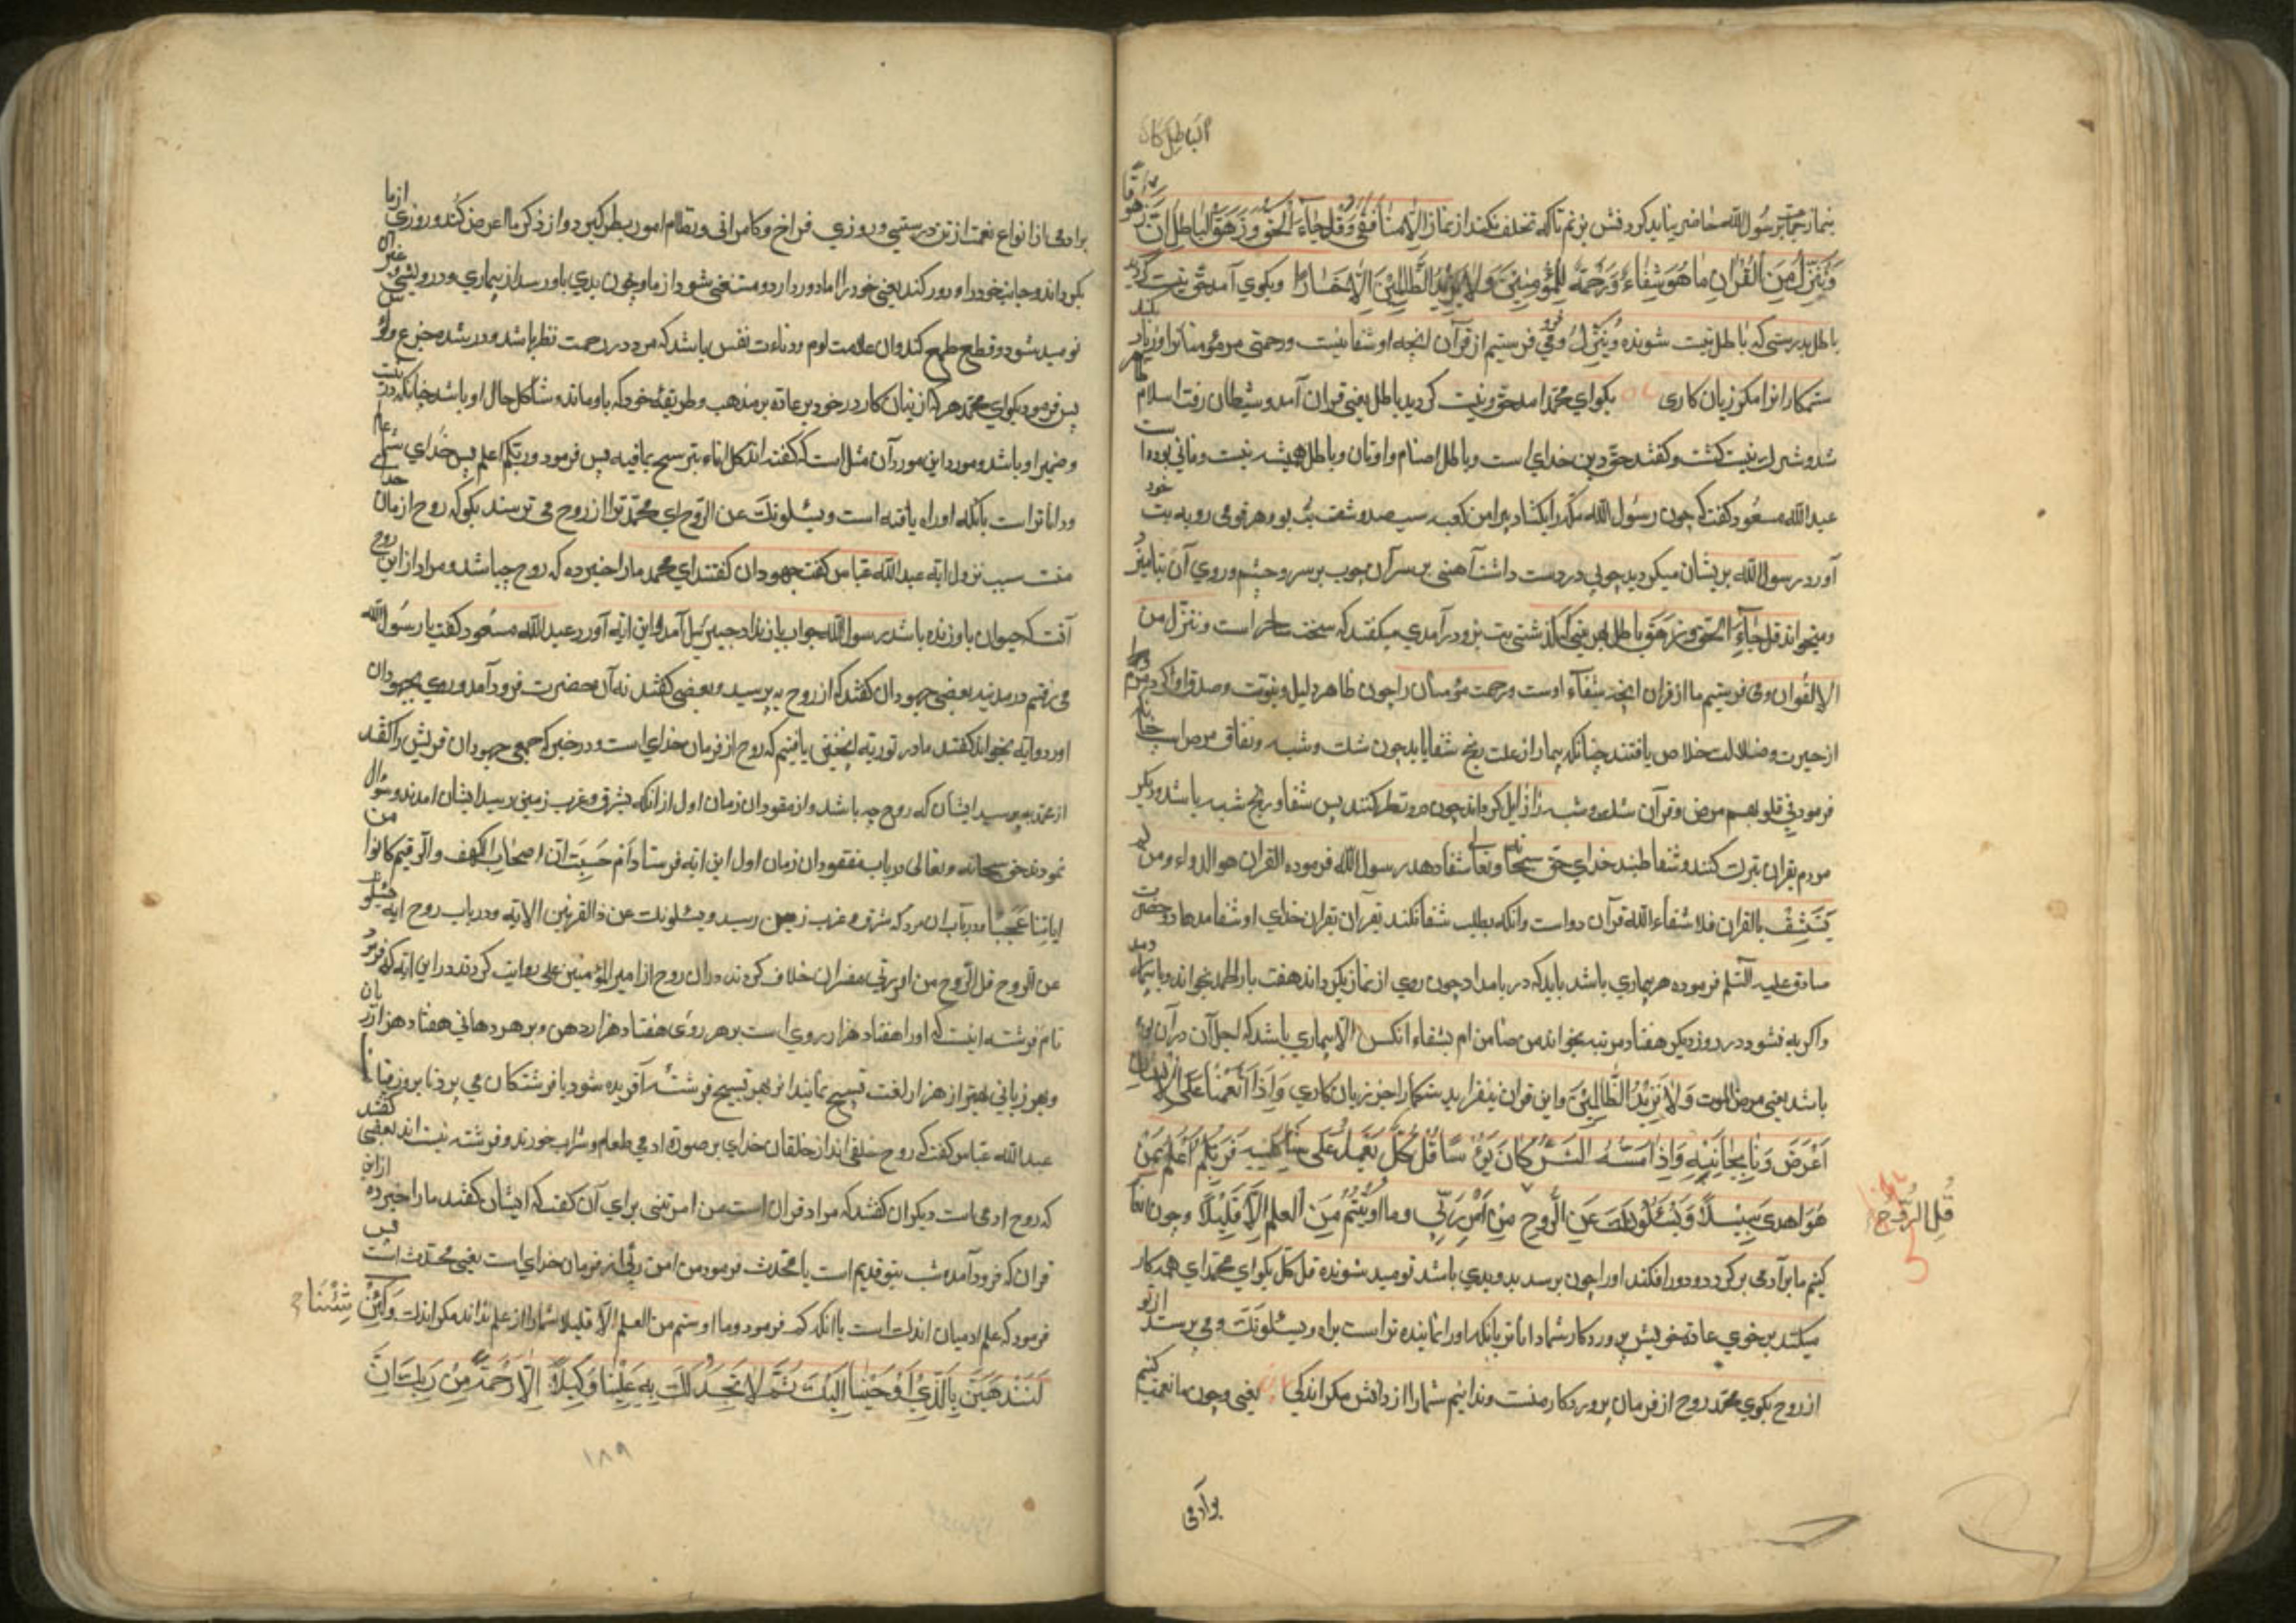 الباطل كان
زهوقا
بنماز جماعت رسول الله حاضر نیاید کردنش بزنم تا که تخلف نکند از نماز الا منافقی وَقُل جَاءَ الْحَقُّ وَزَهَقَ الْبَاطِلُ اِنَّ
وَنُنَزِّلُ مِنَ الْقُرْانِ مَا هُوَ شِفَاءٌ وَرَحْمَةٌ لِلْمُؤْمِنِينَ وَلَا يَزِيدُ الظَّالِمِينَ اِلَّا خَسَارًا وبکوی آمد حق ونیست کردید
باطل بدرستی که باطل نیست شونده وننزل و می فرو فرستیم از قرآن انچه او شفا نیست ورحمتی مر مؤمنانرا وزیاد نکند
ستمکارانرا مکر زیان کاری بکو ای محمّد امد حق ونیست کردید باطل یعنی قران آمد وشیطان رفت اسلام
شد وشرک نیست کشت وکفتند حق دین خدای است وباطل اصنام واوثان وباطل همیشه نیست وفانی بوده است
عبدالله مسعود کفت که چون رسول الله مکه را بکشاد پیرامن کعبه سیصد وشصت بت بود هر قومی رو به بت خود
آورد رسول الله بر ایشان میکردید چوبی در دست داشت آهنی بر سر آن چوب بر سر وچشم وروی آن بتان میزد
ومیخواند قل جاء الحق وزهق باطل اهل میکفتند که سخت ساحر است وننزل من
القران ومی فرستیم ما از قران انچه شفاء اوست ورحمت مؤمنان را چون ظاهر دلیل ونبوت وصدق او
از حیرت وضلالت خلاص یافتند چنانکه بیمار از علت رنج شفا یابد چون شک وشبه ونفاق مرض است چنانکه
فرمود فی قلوبهم مرض وقرآن شک وشبه را زایل کرداند چون درو نظر کنند پس شفاء رنج شبه باشد ودیکر
مردم بقران تبرک کنند وشفا طلبند خدای حق سبحانه وتعالی شفا دهد رسول الله فرموده القران هو الدواء ومن لم
یَسْتَشْفِ بالقران فلا شفاء الله قرآن دواست وانکه بطلب شفا نکند بقران خدای او شفا مدهاد وحضرت
صادق علیه السّلم فرموده هر بیماری باشد باید که در بامداد چون روی از نماز بکرداند هفت بار الحمد بخواند وبا بیمار دمد
واکر به نشود در روز دیکر هفتاد مرتبه بخواند من ضامن ام بشفاء انکس الا بیماری باشد که اجل آن در آن بود
باشد یعنی مرض الموت وَلَا يَزِيدُ الظَّالِمِينَ واین قران نیفزاید ستمکارا جز زیان کاری وَاِذَا اَنْعَمْنَا عَلَى الْاِنْسَانِ
اَعْرَضَ وَنَا بِجَانِبِهِ وَاِذَا مَسَّهُ الشَّرُّ كَانَ يَؤُسًا قُلْ كُلٌّ يَعْمَلُ عَلَى شَاكِلَتِهِ فَرَبُّكُمْ اَعْلَمُ بِمَنْ
هُوَ اَهْدَى سَبِيلًا وَيَسْئَلُونَكَ عَنِ الرُّوحِ مِنْ اَمْرِ رَبِّي وما اُوتِيتُمْ مِنَ العلم اِلَّا قَلِيلًا وچون انعام
قُلِ الرُّوحُ
کنیم ما بر آدمی بر کردد ودور افکند اورا چون برسد بدو بدی باشد نومید شونده قل کل بکو ای محمّد ای همه کار
میکنند بر خوی عادة خویش پروردکار شما داناتر بانکه اورا نماینده تراست براه ویسئلونک ومی پرسند از تو
از روح بکوی محمّد روح از فرمان پروردکار منست وندادنیم شمارا از دانش مکر اندکی یعنی وچون ما نعمت کنیم
بر آدمی
بر ادمی از انواع نعمت از تن درستی وروزی فراخ وکامرانی ونظام امور بطر کیرد واز ذکر ما اعرض کند وروزی از ما
بکرداند وجانب خود را دور کند یعنی خود را از ما دور دارد ومستغنی شود از ما وچون بدی باو رسد از بیماری ودرویشی وغیر آن
نومید شود وقطع طمع کند وان علامت لوم ودناءت نفس باشد که مرد در رحمت نظر باشد ودر شده جزع
پس فرمود بکو ای محمّد هر که از نیان کار در خود بر عاده بر مذهب وطریقهٔ خود که باو ماند وشاکل حال او باشد چنانکه در نیت
وضمیر او باشد ومورد این مورد آن مثل است که کفته اند کل اناء یترشح بما فیه پس فرمود وربکم اعلم پس خدای شما عالم
وداناتر است بانکه او راه یافته است ویسئلونک عن الروح ای محمّد ترا از روح می ترسند بکو که روح از مان خدای
منست سبب نزول ایه عبدالله عباس کفت جهودان کفتند ای محمد مارا خبر ده که روح چه باشد ومراد از این روح
آنست که حیوان باو زنده باشد رسول الله جواب باز نداد جبیرئیل آمد واین ایه آورد عبدالله مسعود کفت با رسول الله
می رفتم در مدنیه بعضی جهودان کفتند که از روح بپرسید وبعضی کفتند نه آن حضرت فرود آمد وروی بجهودان
آورد وایه بخواند کفتند ما در توریه انچنین یافتیم که روح از فرمان خدای است ودر خبر که جمعی جهودان قریش را کفتند
از محمد بپرسید ایشان که روح چه باشد واز مفقودان زمان اول از آنکه بشرق وغرب زمین رسید ایشان امدند وسؤال
نمودند حق سبحانه وتعالی در باب مفقودان زمان اول این ایه فرستاد اَم حَسِبَت انّ اصحابَ الکهف والرقیم کانوا من
ایاتنا عَجَبًا ودرباب ان مرد که شرق وغرب زمین رسید ویسئلونک عن ذالقرنین الایه ودر باب روح ایه ویسئلونک
عن الروح قل الرّوح من امر ربی مفسران خلاف کردند در ان روح از امیرالمؤمنین علی روایت کردند در این ایه که فرمود
نام فرشته ایست که اورا هفتاد هزار روی است بر هر روی هفتاد هزار دهن وبر هر دهانی هفتاد هزار زبان
وبهر زبانی بهتر از هزار لغت تسبیح نمایند از بهر تسبیح فرشتهٔ آفریده شود با فرشتکان می پرد تا بروز قیامت
عبدالله عباس کفت که روح خلقی اند از خلقان خدای بر صورة ادمی طعام وشراب خورند وفرشته نیستند بعضی کفتند
که روح ادمی است دیکران کفتند که مراد قران است من امر ربی برای آن کفت که ایشان کفتند مارا خبر ده از این
قران که فرود آمده شب بتو قدیم است یا محدث فرمود من امر ربّی از فرمان خدای است یعنی محدث است پس
فرمود که علم ادمیان اندک است با انکه که فرمود وما اوتیتم من العلم الّا قلیلا شمارا از علم نداند مکر اندک وَلَئِنْ شِئْنَا
لَنَذْهَبَنَّ بِالَّذِي اَوْحَيْنَا اِلَيْكَ ثُمَّ لَا تَجِدُ لَكَ بِهِ عَلَيْنَا وَكِيلًا اِلَّا رَحْمَةً مِنْ رَبِّكَ اِنَّ
١٨٩